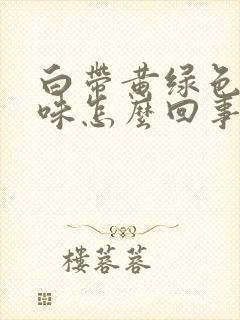 白帶黄绿色
味怎麼回事
樓蓉蓉